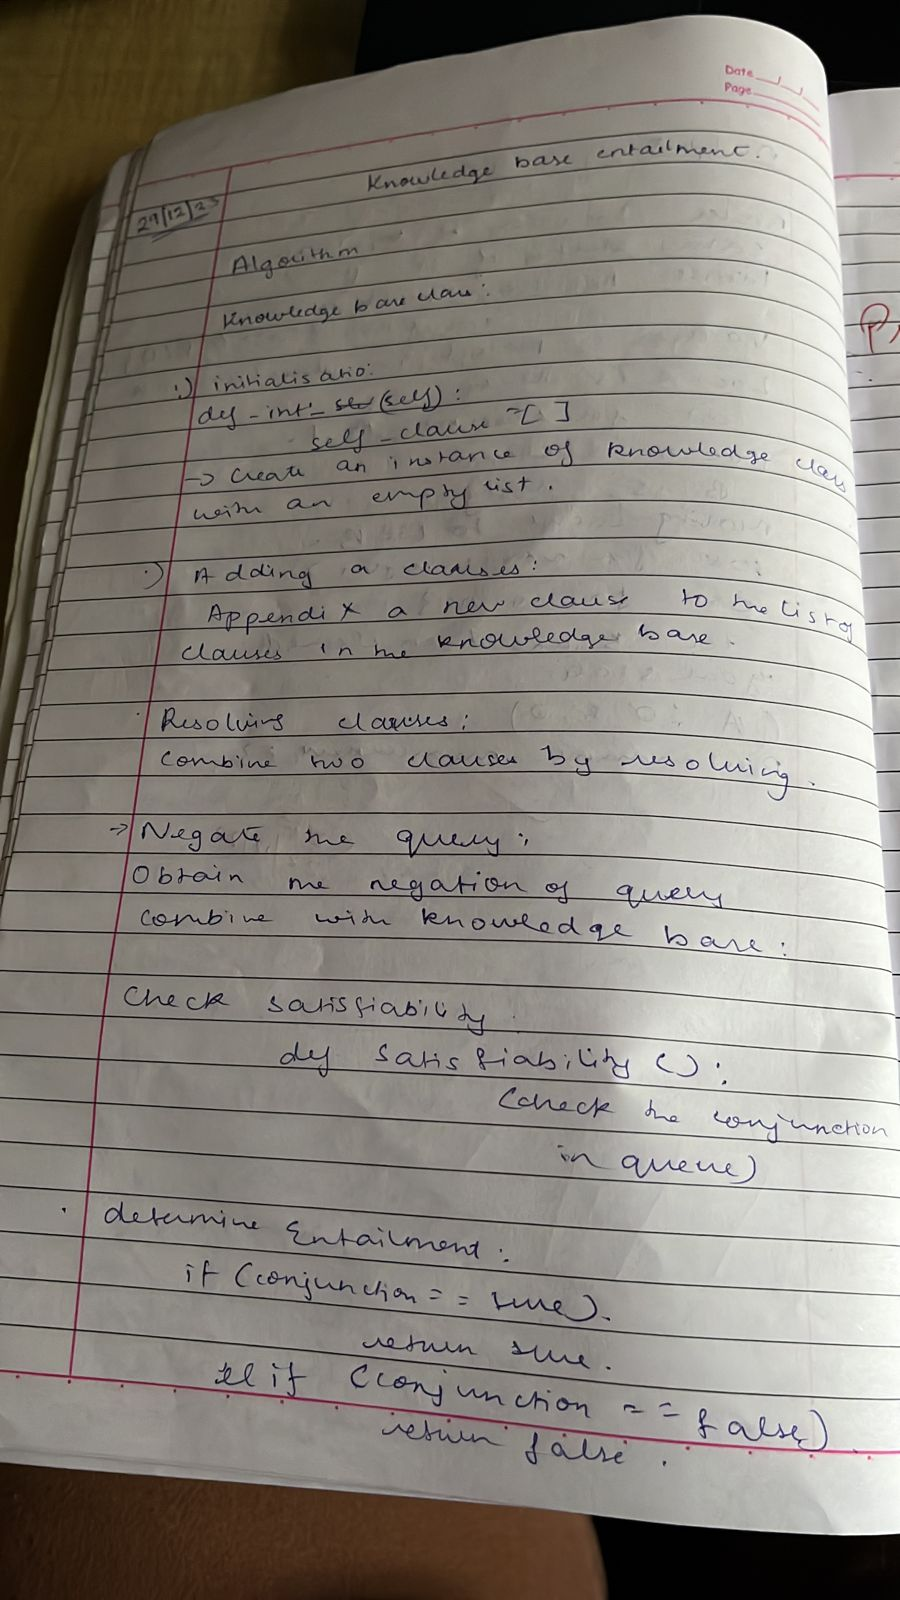 Date
Page
Knowledge base entailment.
29/12/23
Algorithm
Knowledge base class:
:) initialisatio:
def _int_ se (self):
self_clause = [ ]
-> Create an instance of knowledge class
with an empty list.
·) Adding a clauses:
Appendix a new clause to the list of
clauses in the knowledge base.
· Resolving clauses:
Combine two clauses by resolving.
-> Negate the query:
Obtain the negation of query
combine with knowledge base:
Check satisfiability
def satisfiability ():
(check the conjunction
in queue)
· determine Entailment:
if (conjunction == true).
return true.
elif (conjunction == false)
return false.